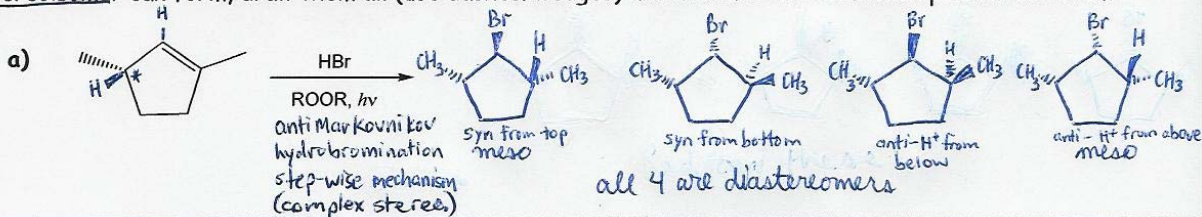 a)
H
H *
HBr
ROOR, hv
anti Markovnikov
hydrobromination
step-wise mechanism
(complex stereo.)
Br
CH3 H
CH3
syn from top
meso
Br
CH3 H
CH3
syn from bottom
Br
CH3 H
CH3
anti-H+ from
below
Br
CH3 H
CH3
anti-H+ from above
meso
all 4 are diastereomers